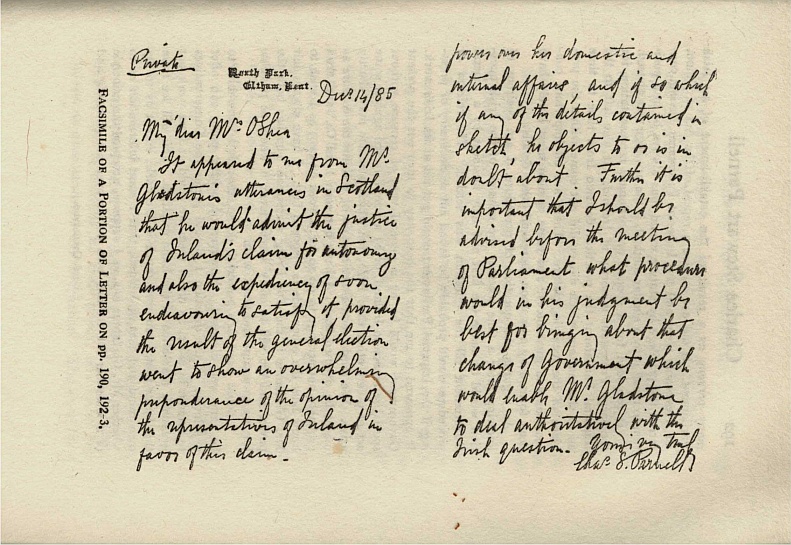 FACSIMILE OF A PORTION OF LETTER ON pp. 190, 192-3.
Private
North Park,
Eltham, Kent.
Decr 14/85
My dear Mrs O'Shea
It appeared to me from Mr
Gladstone's utterances in Scotland
that he would admit the justice
of Ireland's claim for autonomy
and also the expediency of soon
endeavouring to satisfy it provided
the result of the general election
went to show an overwhelming
preponderance of the opinion of
the representatives of Ireland in
favor of this claim.
powers over her domestic and
internal affairs, and if so which
if any of the details contained in
sketch, he objects to or is in
doubt about. Further it is
important that I should be
advised before the meeting
of Parliament what procedure
would in his judgment be
best for bringing about that
change of Government which
would enable Mr. Gladstone
to deal authoritatively with the
Irish question. Yours very truly
Chas S. Parnell